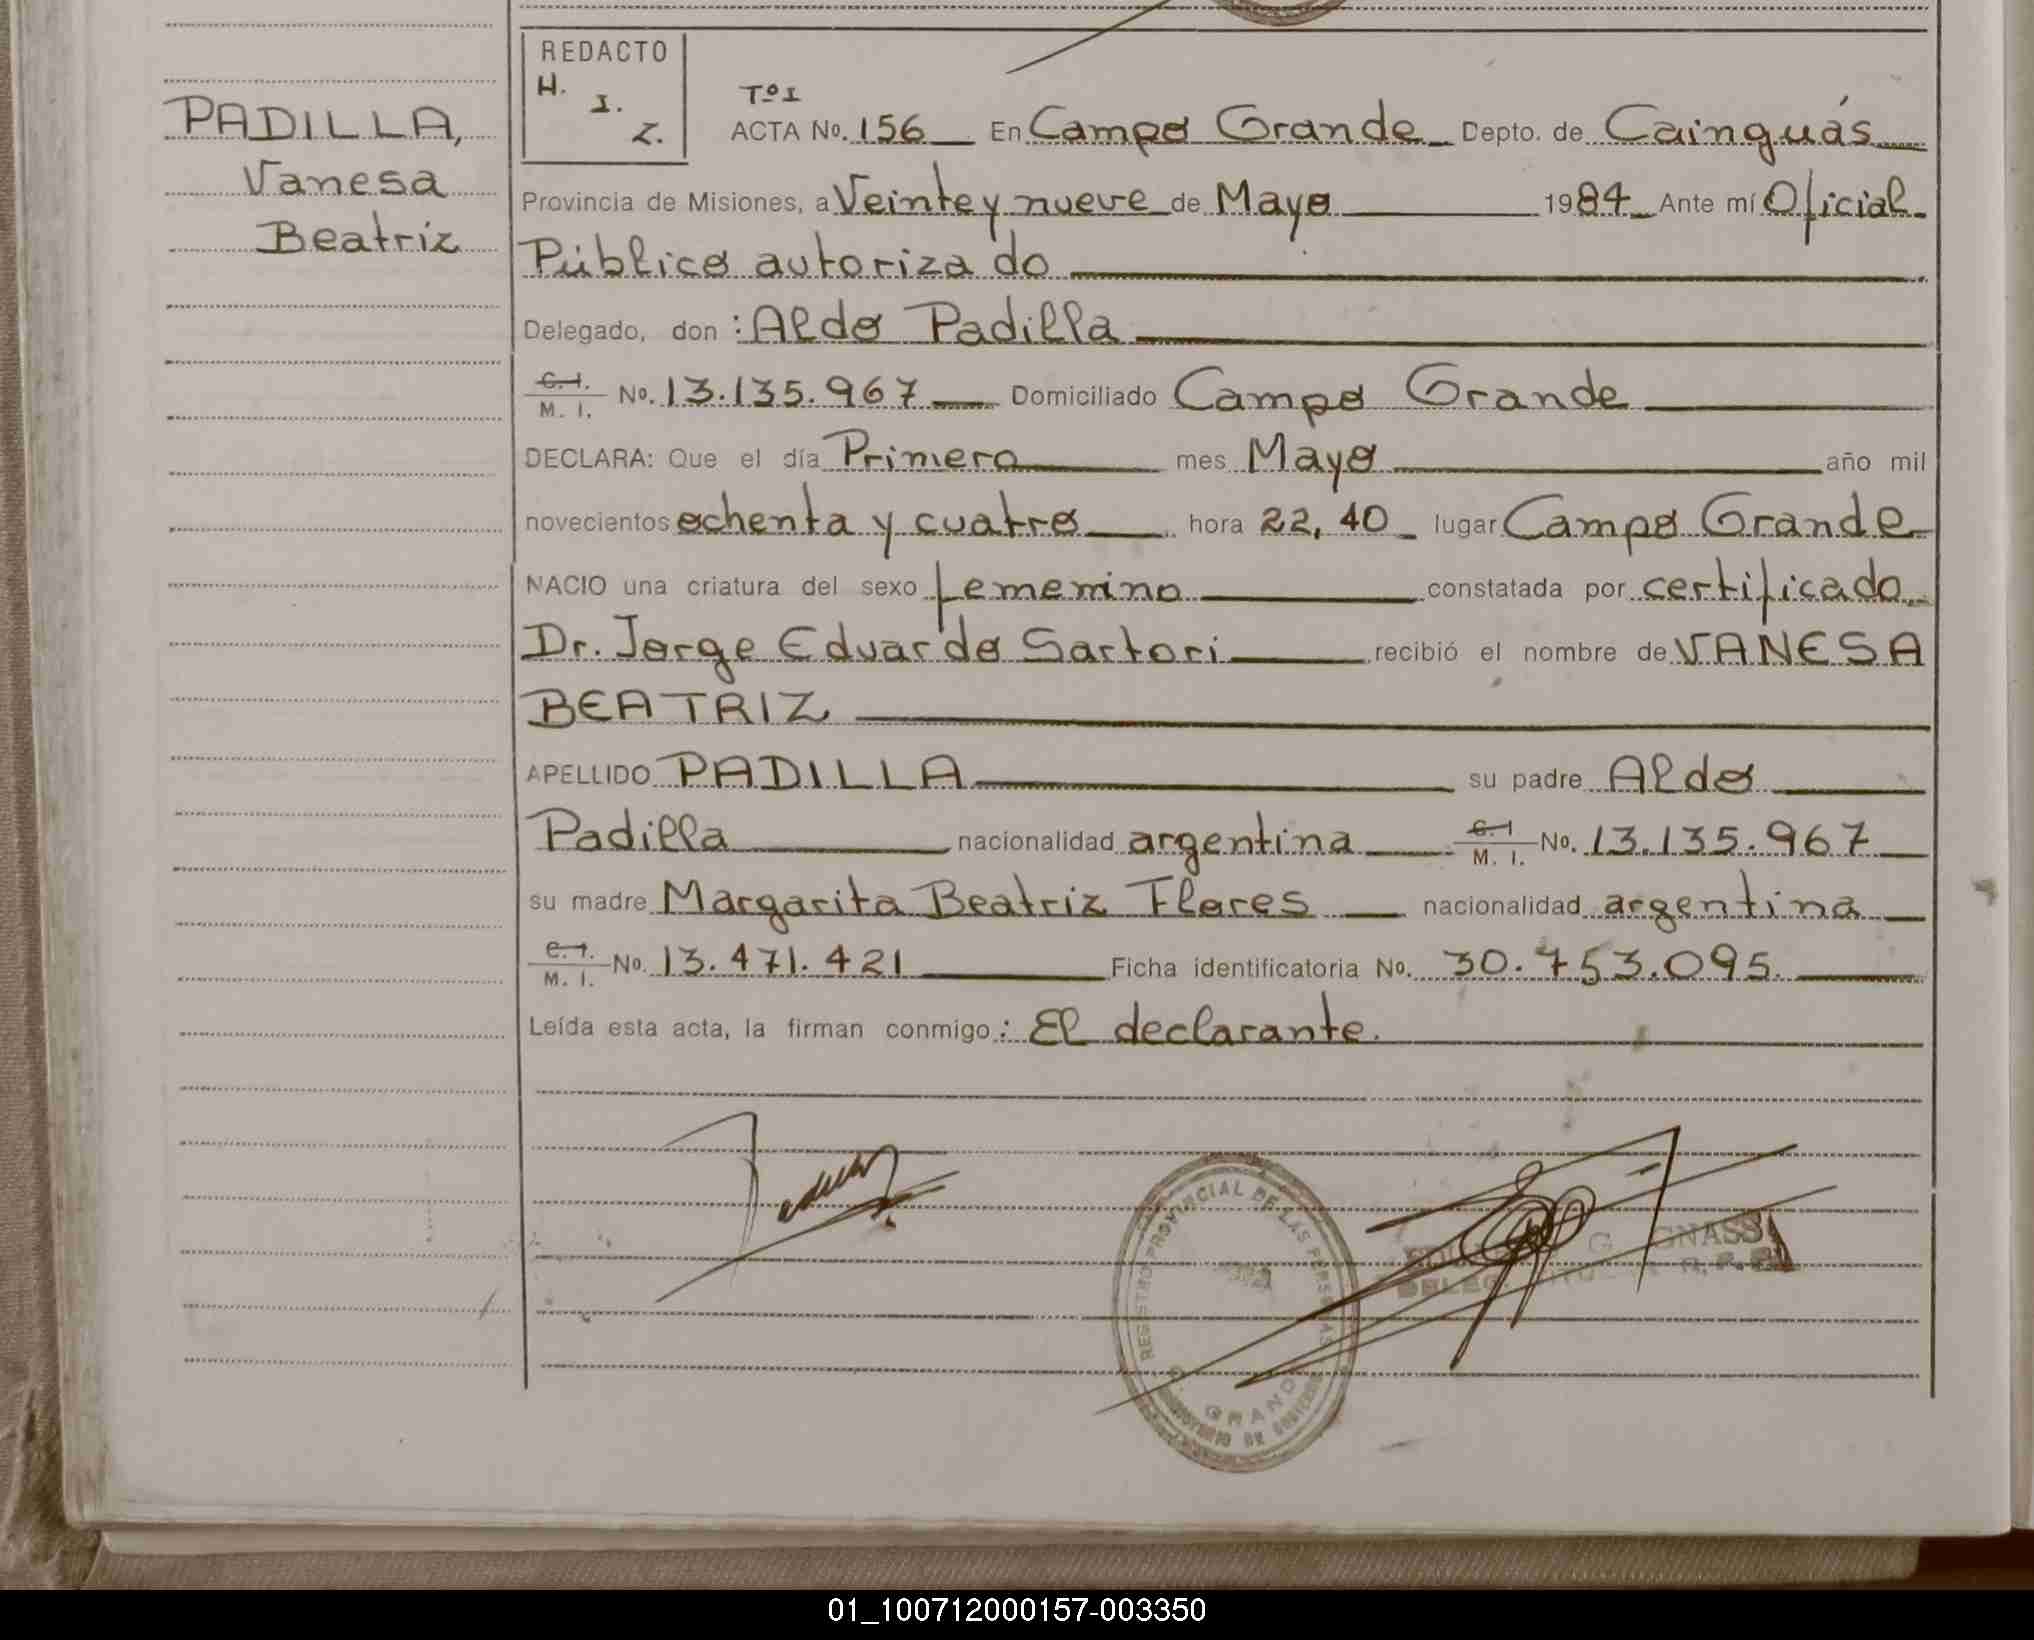 PADILLA,
Vanesa
Beatriz
REDACTO
H.
I.
Z.
Tº I
ACTA No. 156 En Campo Grande Depto. de Cainguás
Provincia de Misiones, a Veinte y nueve de Mayo 1984 Ante mí Oficial
Público autorizado
Delegado, don : Aldo Padilla
C. I.
M. I. No. 13.135.967 Domiciliado Campo Grande
DECLARA: Que el día Primero mes Mayo año mil
novecientos ochenta y cuatro hora 22,40 lugar Campo Grande
NACIO una criatura del sexo femenino constatada por certificado
Dr. Jorge Eduardo Sartori recibió el nombre de VANESA
BEATRIZ
APELLIDO PADILLA su padre Aldo
Padilla nacionalidad argentina C. I. M. I. No. 13.135.967
su madre Margarita Beatriz Flores nacionalidad argentina
C. I. M. I. No. 13.471.421 Ficha identificatoria No. 30.753.095.
Leída esta acta, la firman conmigo : El declarante.
REGISTRO PROVINCIAL DE LAS PERSONAS
GRANDE
01_100712000157-003350